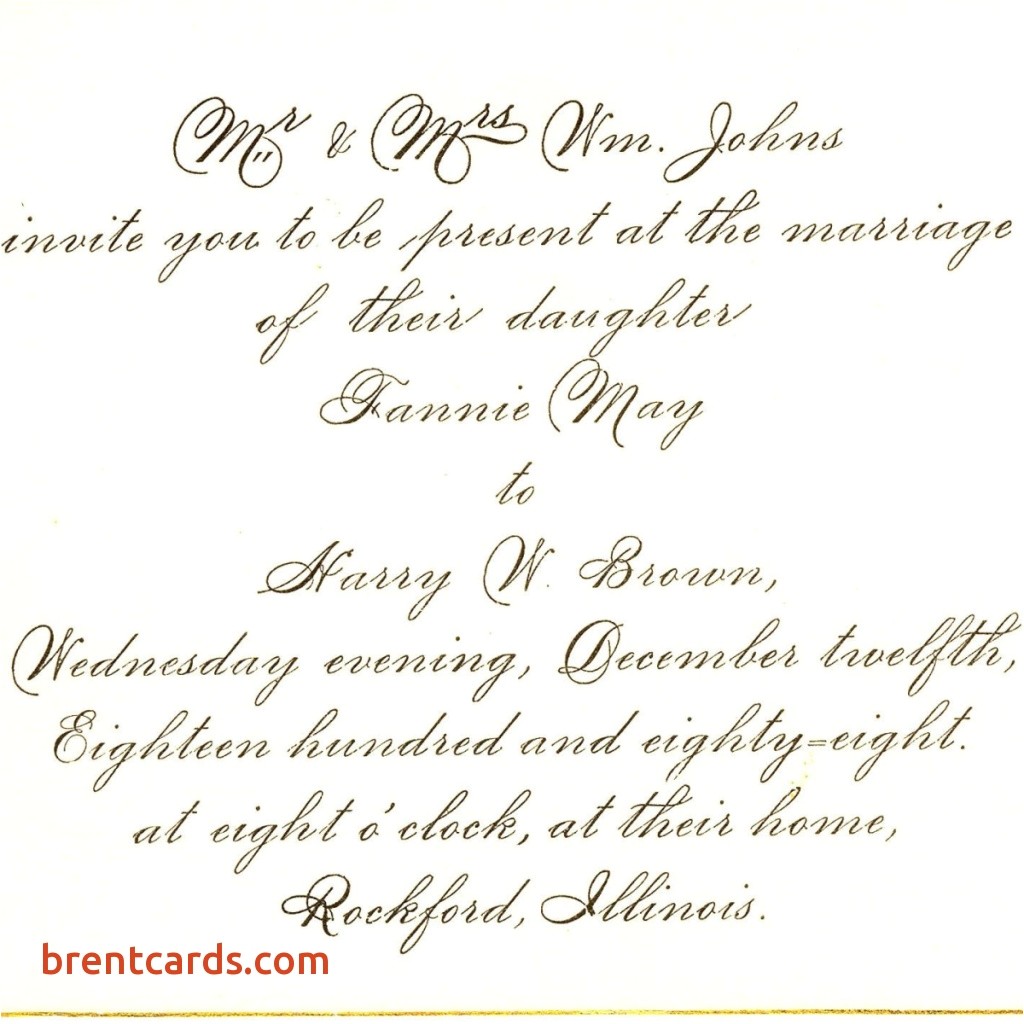 Mr & Mrs Wm. Johns
invite you to be present at the marriage
of their daughter
Fannie May
to
Harry W. Brown,
Wednesday evening, December twelfth,
Eighteen hundred and eighty=eight.
at eight o'clock, at their home,
Rockford, Illinois.
brentcards.com